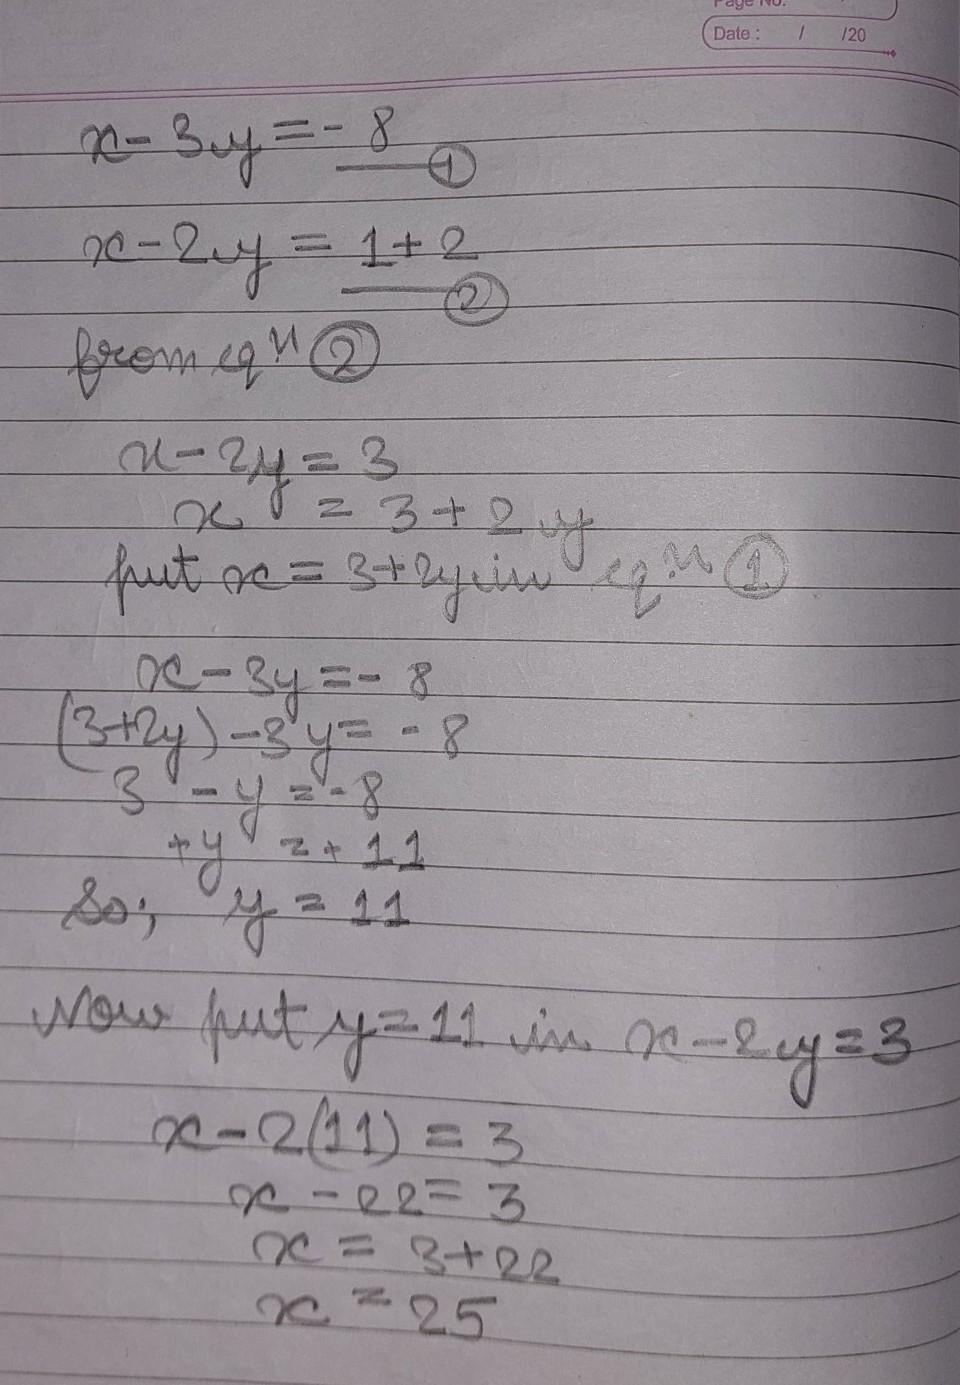 Page No.
Date : / /20
x - 3y = - 8
①
x - 2y = 1 + 2
②
from eqn ②
x - 2y = 3
x = 3 + 2y
put x = 3+2y in eq:n ①
x - 3y = - 8
(3+2y) - 3y = - 8
3 - y = - 8
+ y = + 11
So;, y = 11
Now put y = 11 in x - 2y = 3
x - 2(11) = 3
x - 22 = 3
x = 3 + 22
x = 25